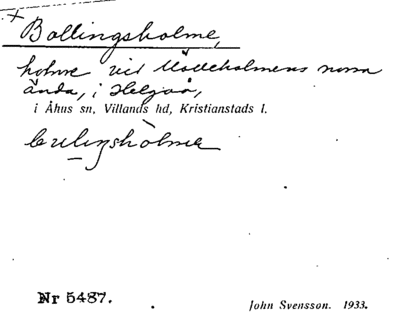 Bollingsholme,
holme vid Mölleholmens norra
ända, i Helgeå,
i Åhus sn, Villands hd, Kristianstads l.
Nr 5487.
John Svensson. 1933.